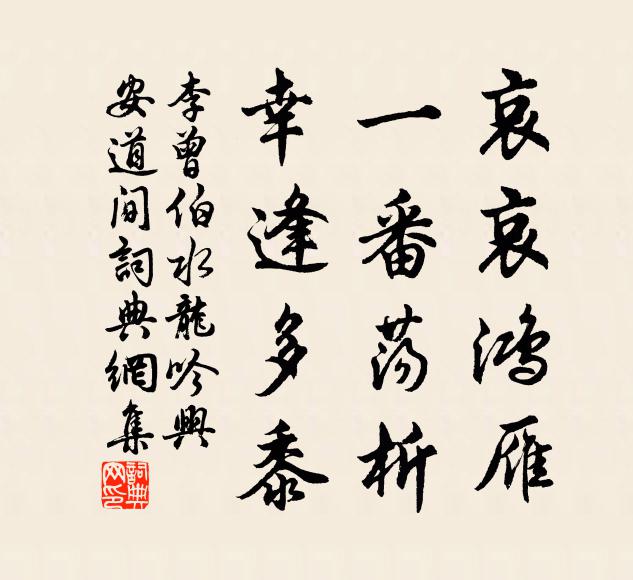 哀哀鴻雁
一番蕩析
幸逢多黍
李曾伯水龍吟興
安道間詞典網集
詞典
网印